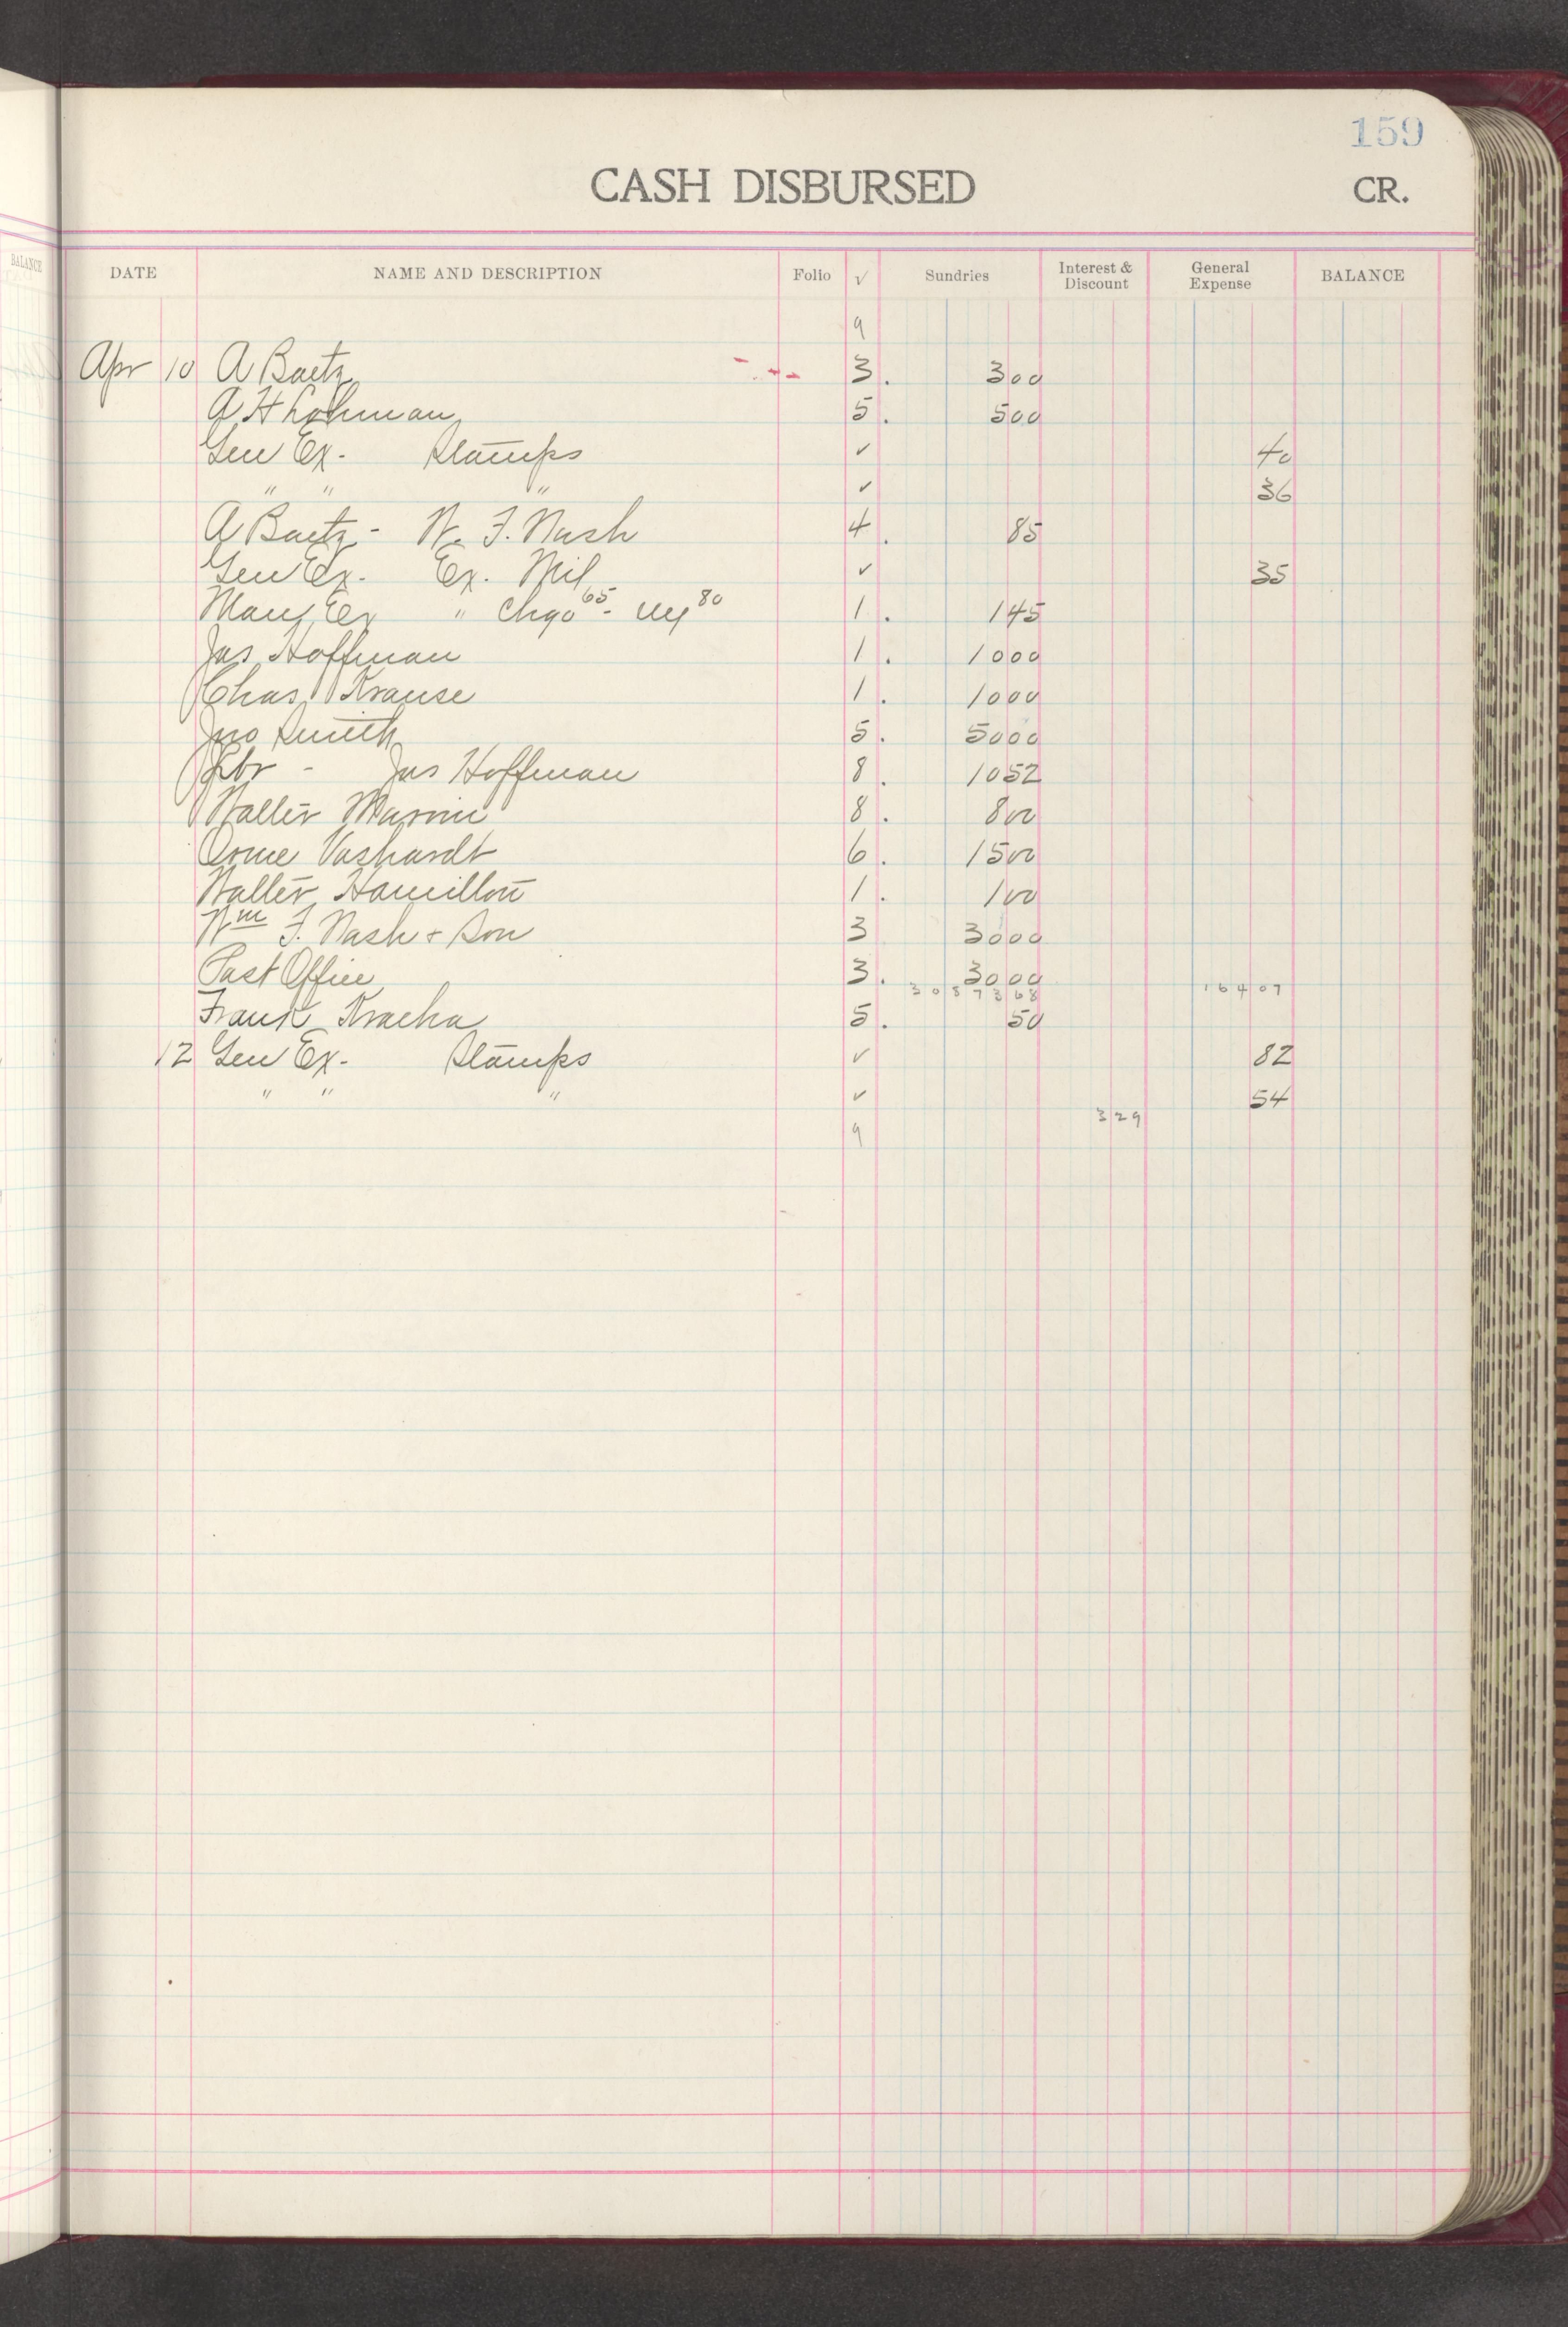 159
CASH DISBURSED CR.
BALANCE
DATE NAME AND DESCRIPTION Folio √ Sundries Interest & Discount General Expense BALANCE
9
Apr 10 A Baetz 3. 300
A H Lohman 5. 500
Gen Ex - Stamps ✓ 40
" " " ✓ 36
A Baetz - W. F. Nash 4. 85
Gen Ex. Ex. Mil ✓ 35
Manf Ex " Chgo 65 - 80 1. 145
Jas Hoffman 1. 1000
Chas Krause 1. 1000
Jno Smith 5. 5000
Lbr - Jas Hoffman 8. 1052
Walter 8. 800
Vashardt 6. 1500
Walter Hamilton 1. 100
Wm F. Nash & Son 3 3000
Post Office 3. 3000
3087368 16407
Frank Kracha 5. 50
12 Gen Ex - Stamps ✓ 82
" " " ✓ 54
329
9